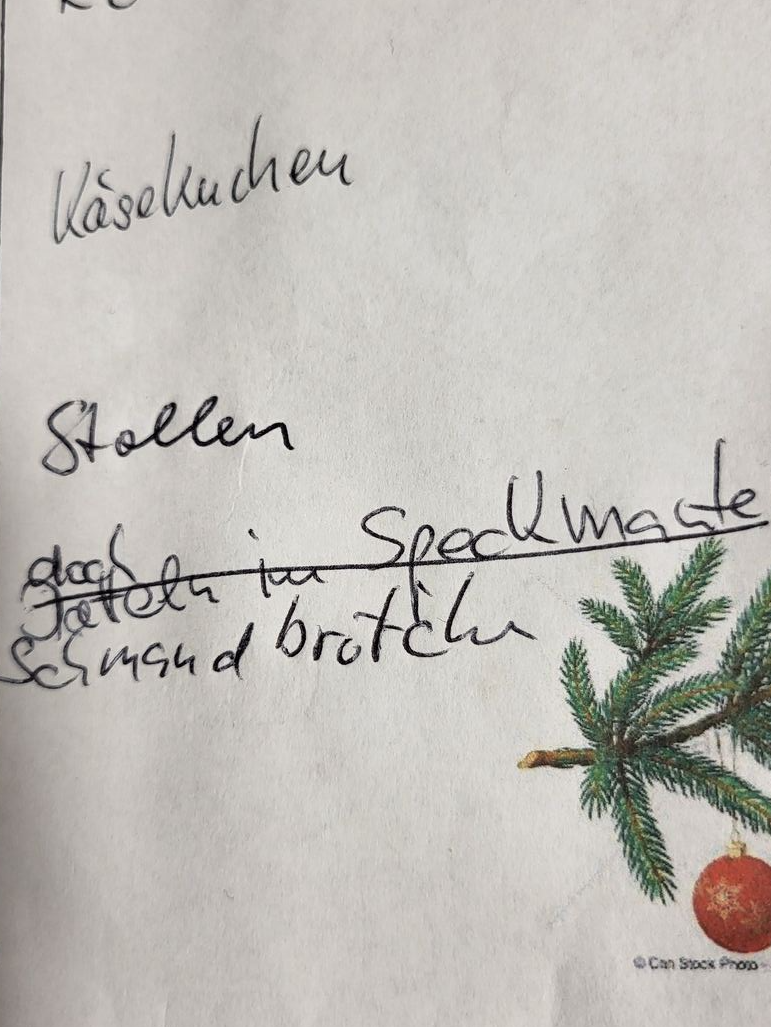 Käsekuchen
Stollen
doch
Dateln im Speckmante
Schmandbrötchn
© Can Stock Photo